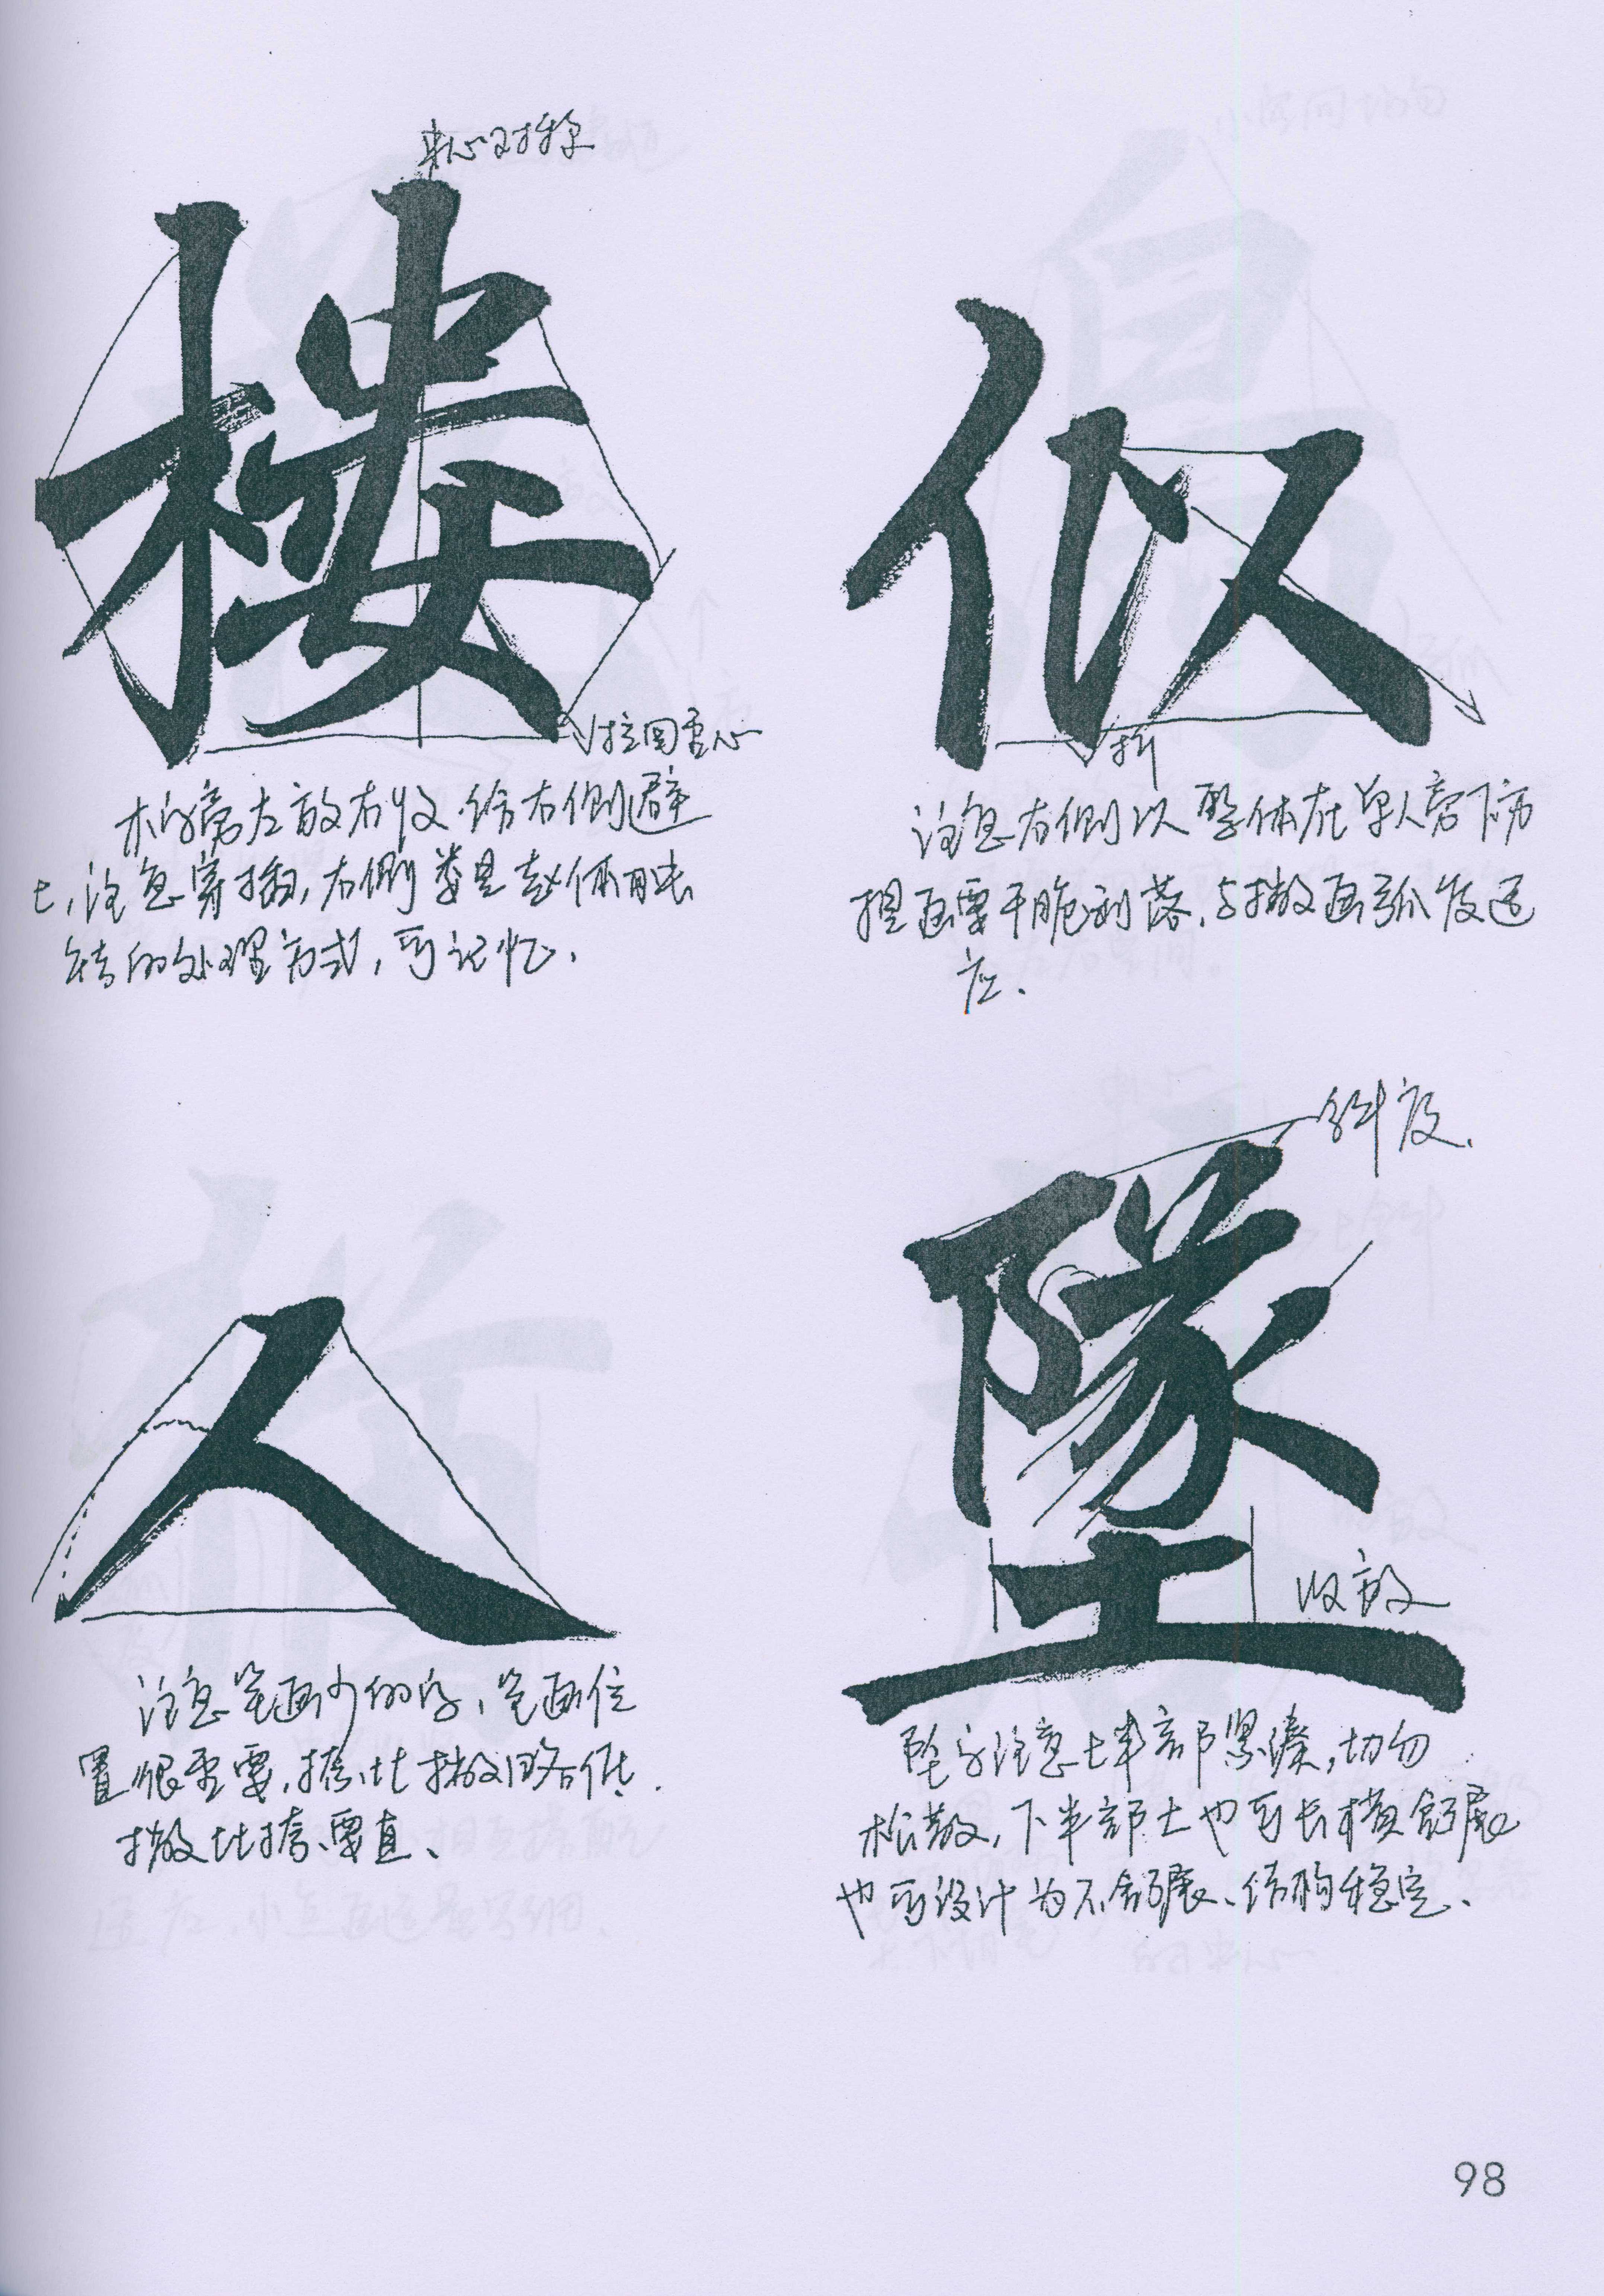 重心对称
楼
拉回重心
木字旁左放右收.给右侧避
让,注意穿插,右侧娄是赵体用来
转的处理方式,可记忆.
似
折
注意右侧以 整体在单人旁下方
提画要干脆利落.与撇画弧度适
应.
人
注意笔画少的字,笔画位
置很重要.捺比撇略低.
撇比捺要直、
斜度.
墜
收放
坠字注意上半部紧凑,切勿
松散,下半部土也可长横舒展
也可设计为不舒展、结构稳定、
98